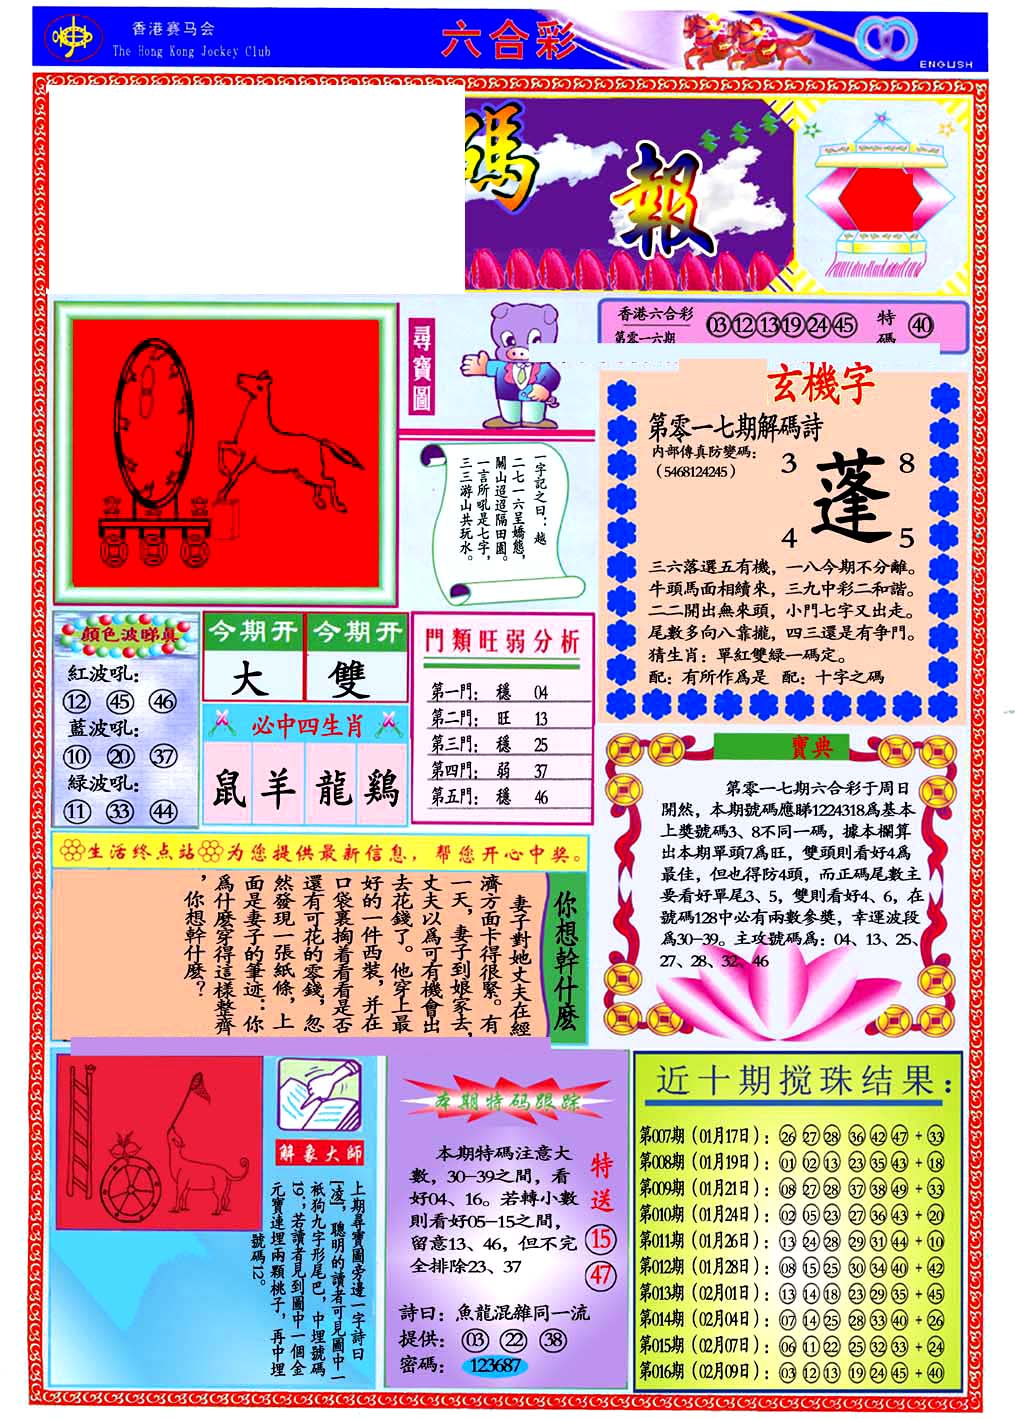 香港赛马会
The Hong Kong Jockey Club
六合彩
ENGLISH
碼
報
尋寶圖
香港六合彩
第零一六期
03 12 13 19 24 45 特碼 40
一字記之曰：越
二七一六呈嬌態，
關山迢迢隔田園。
一言所吼是七字，
三三游山共玩水。
玄機字
第零一七期解碼詩
内部傳真防變碼：
（5468124245）
3 8
蓬
4 5
三六落選五有機，一八今期不分離。
牛頭馬面相續來，三九中彩二和諧。
二二開出無來頭，小門七字又出走。
尾數多向八靠攏，四三還是有争門。
猜生肖：單紅雙綠一碼定。
配：有所作爲是 配：十字之碼
顏色波睇真
紅波吼：
12 45 46
藍波吼：
10 20 37
緑波吼：
11 33 44
今期开 今期开
大 雙
必中四生肖
鼠 羊 龍 鷄
門類旺弱分析
第一門： 穩 04
第二門： 旺 13
第三門： 穩 25
第四門： 弱 37
第五門： 穩 46
寶典
第零一七期六合彩于周日
開然，本期號碼應睇1224318爲基本
上獎號碼3、8不同一碼，據本欄算
出本期單頭7爲旺，雙頭則看好4爲
最佳，但也得防4頭，而正碼尾數主
要看好單尾3、5，雙則看好4、6，在
號碼128中必有兩數參獎，幸運波段
爲30-39。主攻號碼爲：04、13、25、
27、28、32、46
生活终点站 为您提供最新信息，帮您开心中奖。
你想幹什麽
妻子對她丈夫在經
濟方面卡得很緊。有
一天，妻子到娘家去，
丈夫以爲可有機會出
去花錢了。他穿上最
好的一件西裝，并在
口袋裏掏着看看是否
還有可花的零錢，忽
然發現一張紙條，上
面是妻子的筆迹：你
爲什麽穿得這樣整齊
，你想幹什麽？
解象大師
上期尋寶圖旁邊一字詩曰
[凌]，聰明的讀者可見圖中一
衹狗九字形尾巴，中埋號碼
19；若讀者見到圖中一個金
元寶連埋兩顆桃子，再中埋
號碼12。
本期特码跟踪
本期特碼注意大
數，30-39之間，看
好04、16。若轉小數
則看好05-15之間，
留意13、46，但不完
全排除23、37
特送
15
47
詩曰：魚龍混雜同一流
提供： 03 22 38
密碼： 123687
近十期搅珠结果：
第007期（01月17日）：26 27 28 36 42 47 + 33
第008期（01月19日）：01 02 13 23 35 43 + 18
第009期（01月21日）：08 27 28 37 38 49 + 33
第010期（01月24日）：02 05 23 27 36 43 + 20
第011期（01月26日）：13 24 28 29 31 44 + 10
第012期（01月28日）：08 15 25 30 34 40 + 42
第013期（02月01日）：13 14 18 23 29 35 + 45
第014期（02月04日）：07 14 25 28 33 40 + 26
第015期（02月07日）：06 11 22 25 32 33 + 24
第016期（02月09日）：03 12 13 19 24 45 + 40